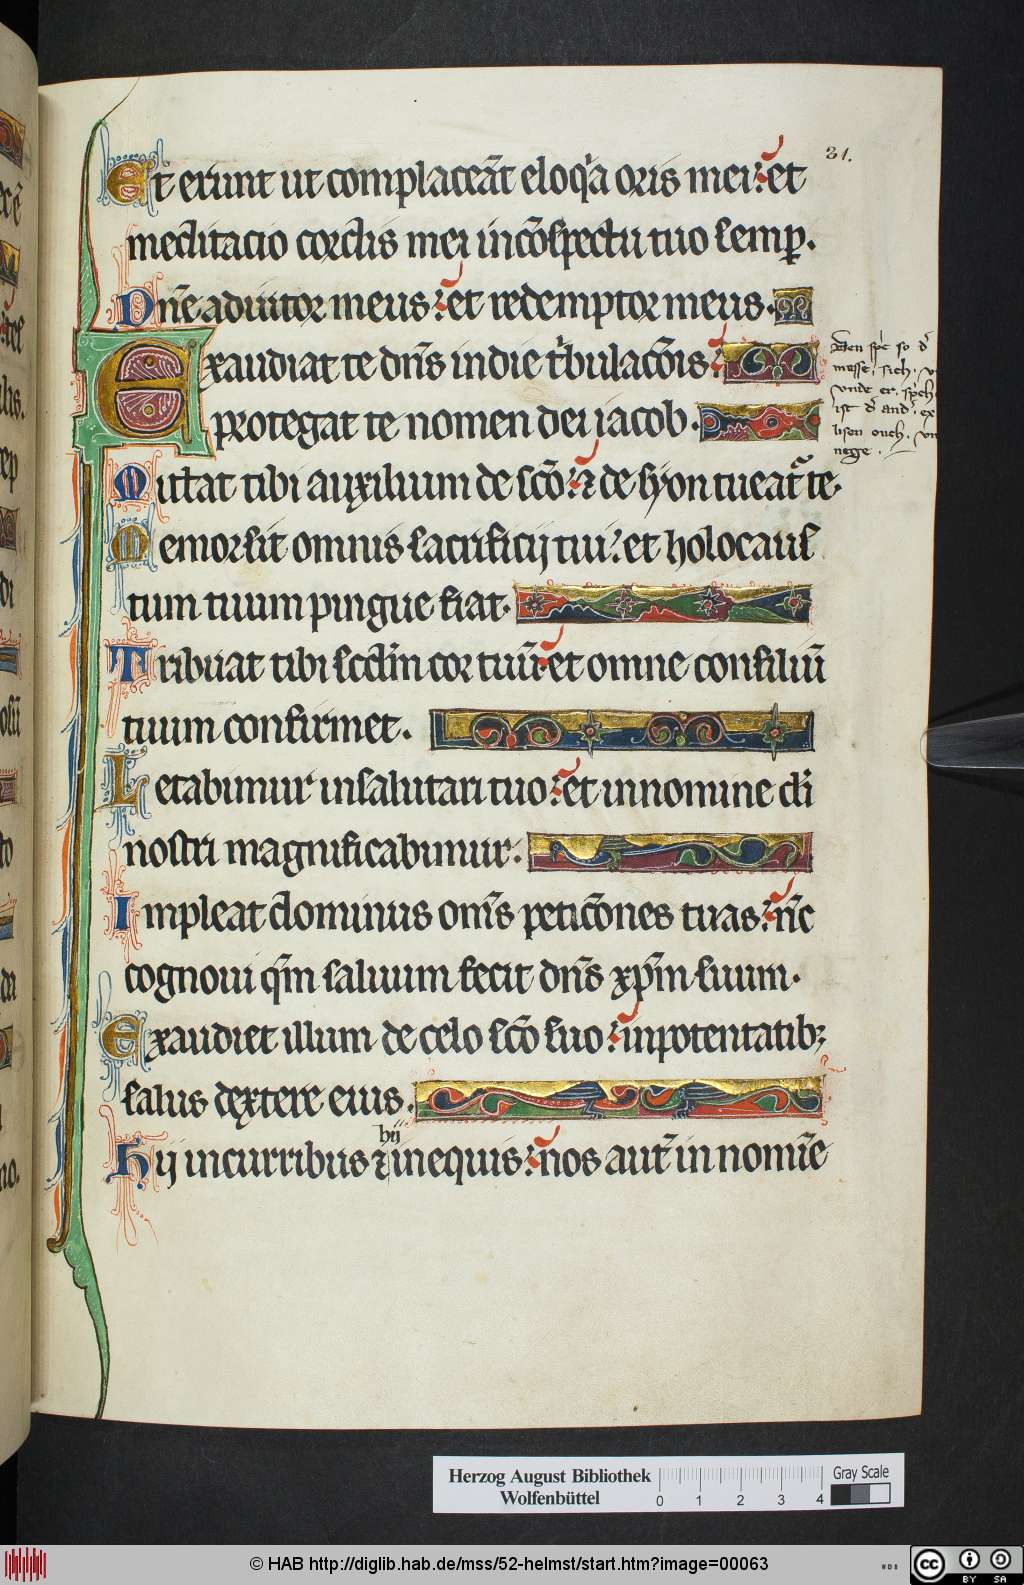 31.
Et erunt ut complacea̅t eloq̍a oris mei: et
meditacio cordis mei inco̅spectu tuo semp̲.
Dn̅e adiutor meus: et redemptor meus.
Exaudiat te dn̅s indie t̍bulaco̅is:
protegat te nomen dei iacob.
Mittat tibi auxilium de sc̅o: ⁊ de syon tueat᷑ te.
Memor sit omnis sacrificij tui: et holocaus
tum tuum pingue fiat.
Tribuat tibi scd̅m cor tuu̅: et omne consiliu̅
tuum confirmet.
Letabimur insalutari tuo: et innomine di̅
nostri magnificabimur.
Impleat dominus om̅s petico̅nes tuas: nu̅c
cognoui qm̅ saluum fecit dn̅s xp̅m suum.
Exaudiet illum de celo sc̅o suo: inpotentatibꝫ
salus dextere eius.
hij
Hij incurribus ⁊ inequis: nos aut̅ in nomi̅e
messe. sich.
vnde er.
ist
ouch.
Herzog August Bibliothek
Wolfenbüttel
0 1 2 3 4
Gray Scale
© HAB http://diglib.hab.de/mss/52-helmst/start.htm?image=00063
WDB
cc
BY SA